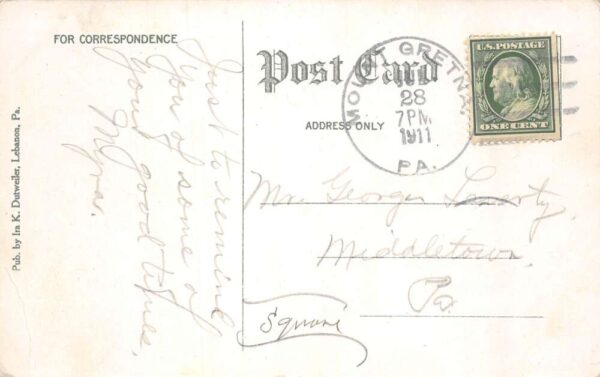 FOR CORRESPONDENCE
Post Card
ADDRESS ONLY
MOUNT GRETNA,
28
7PM
1911
PA.
U.S. POSTAGE
ONE CENT
Just to remind
you of some of
your good times.
Myra.
Mr. George
Middletown
Pa
Square
Pub. by Ira K. Dutweiler, Lebanon, Pa.